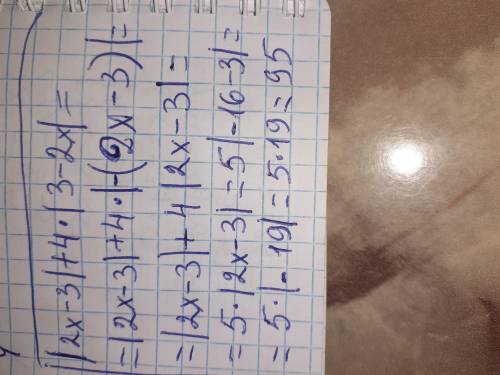 |2x-3|+4·|3-2x|=
=|2x-3|+4·|-(2x-3)|=
=|2x-3|+4|2x-3|=
=5·|2x-3|=5|-16-3|=
=5·|-19|=5·19=95